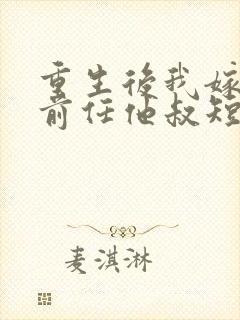 重生後我嫁
前任他叔短
麦淇淋